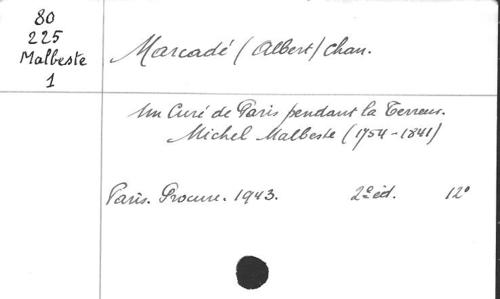 80
225
Malbeste
1
Marcadé (Albert) chan.
Un Curé de Paris pendant la Terreur.
Michel Malbeste (1754-1841)
Paris. Procure. 1943. 2e éd. 12°